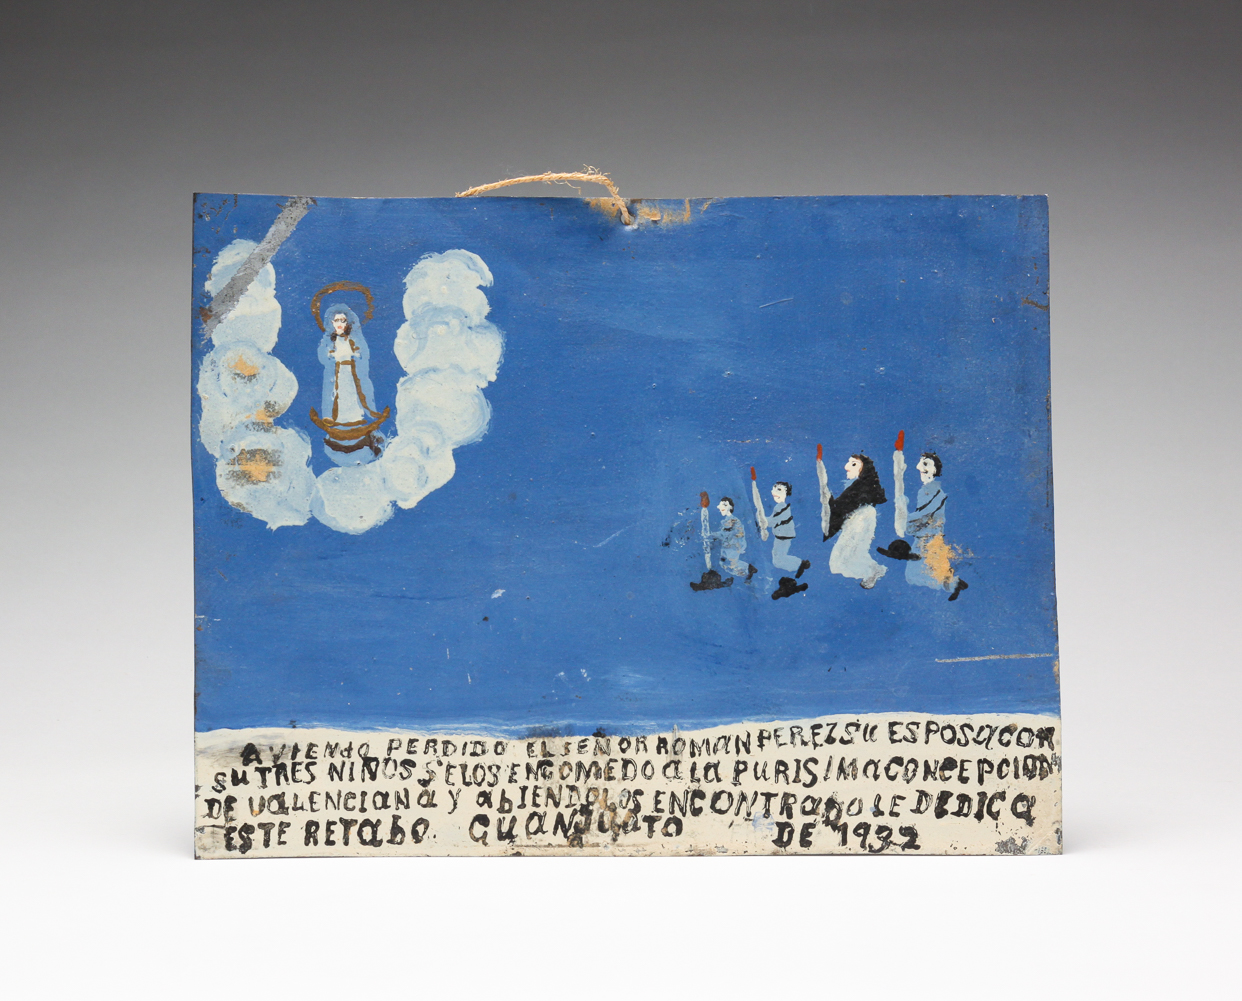 AVIENdO PERDIDO EL SEÑOR ROMAN PEREZ SU ESPOSA Y COR
SU TRES NIÑOS SELOS ENCOMEDO a La PURISIMa CONCEPCION
DE VaLENCIANa Y abIENDOLOS ENCONTRaDO LE DEDICa
ESTE RETabO. GUANJUaTO DE 1932